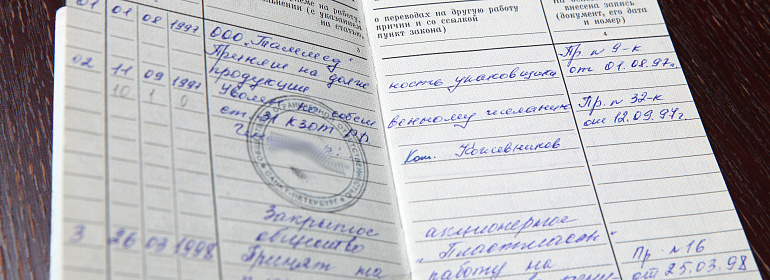 еме на работу,
ольнении (с указани
на статью,
3
о переводах на другую работу
причин и со ссылкой
пункт закона)
внесена запись
(документ, его дата
и номер)
4
01 01 08 1997
ООО „Таммед"
Принят на долж ность упаковщика
продукции
Пр. № 9-к
от 01.08.97г.
02 11 09 1997
Уволен по собст венному желанию
ст 31 КЗОТ РФ
Пр. № 32-к
от 12.09.97г.
10 1 0
Кожевников
САНКТ-ПЕТЕРБУРГ
3 26 03 1998
Закрытое акционерное
общество „Пластмассы"
Принят на работу на
Пр. № 16
от 25.03.98